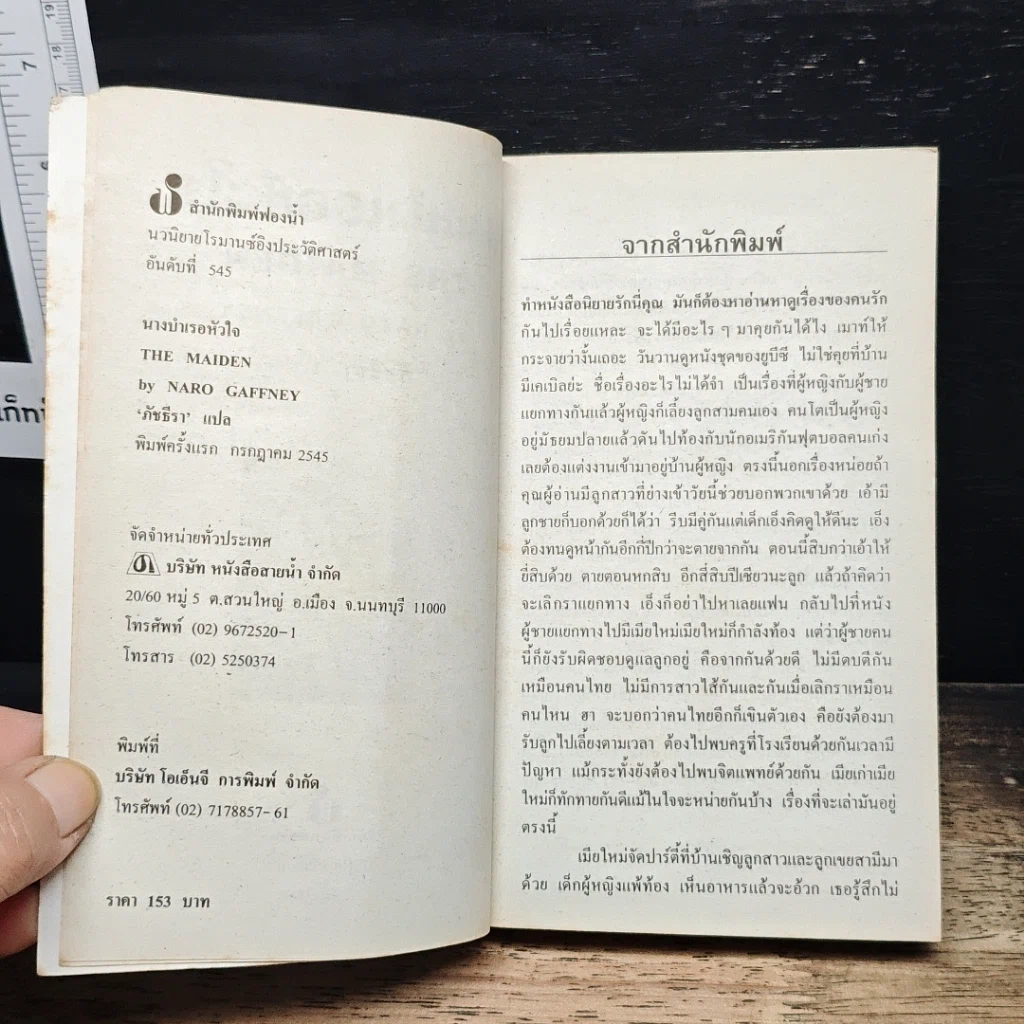 สำนักพิมพ์ฟองน้ำ
นวนิยายโรมานซ์อิงประวัติศาสตร์
อันดับที่ 545
นางบำเรอหัวใจ
THE MAIDEN
by NARO GAFFNEY
'ภัชธีรา' แปล
พิมพ์ครั้งแรก กรกฎาคม 2545
จัดจำหน่ายทั่วประเทศ
บริษัท หนังสือสายน้ำ จำกัด
20/60 หมู่ 5 ต.สวนใหญ่ อ.เมือง จ.นนทบุรี 11000
โทรศัพท์ (02) 9672520-1
โทรสาร (02) 5250374
พิมพ์ที่
บริษัท โอเอ็นจี การพิมพ์ จำกัด
โทรศัพท์ (02) 7178857-61
ราคา 153 บาท
จากสำนักพิมพ์
ทำหนังสือนิยายรักนี่คุณ มันก็ต้องหาอ่านหาดูเรื่องของคนรัก
กันไปเรื่อยแหละ จะได้มีอะไร ๆ มาคุยกันได้ไง เมาท์ให้
กระจายว่างั้นเถอะ วันวานดูหนังชุดของยูบีซี ไม่ใช่คุยที่บ้าน
มีเคเบิลย่ะ ชื่อเรื่องอะไรไม่ได้จำ เป็นเรื่องที่ผู้หญิงกับผู้ชาย
แยกทางกันแล้วผู้หญิงก็เลี้ยงลูกสามคนเอง คนโตเป็นผู้หญิง
อยู่มัธยมปลายแล้วดันไปท้องกับนักอเมริกันฟุตบอลคนเก่ง
เลยต้องแต่งงานเข้ามาอยู่บ้านผู้หญิง ตรงนี้นอกเรื่องหน่อยถ้า
คุณผู้อ่านมีลูกสาวที่ย่างเข้าวัยนี้ช่วยบอกพวกเขาด้วย เอ้ามี
ลูกชายก็บอกด้วยก็ได้ว่า รีบมีคู่กันแต่เด็กเอ็งคิดดูให้ดีนะ เอ็ง
ต้องทนดูหน้ากันอีกกี่ปีกว่าจะตายจากกัน ตอนนี้สิบกว่าเอ้าให้
ยี่สิบด้วย ตายตอนหกสิบ อีกสี่สิบปีเชียวนะลูก แล้วถ้าคิดว่า
จะเลิกราแยกทาง เอ็งก็อย่าไปหาเลยแฟน กลับไปที่หนัง
ผู้ชายแยกทางไปมีเมียใหม่เมียใหม่ก็กำลังท้อง แต่ว่าผู้ชายคน
นี้ก็ยังรับผิดชอบดูแลลูกอยู่ คือจากกันด้วยดี ไม่มีตบตีกัน
เหมือนคนไทย ไม่มีการสาวไส้กันและกันเมื่อเลิกราเหมือน
คนไหน ฮา จะบอกว่าคนไทยอีกก็เขินตัวเอง คือยังต้องมา
รับลูกไปเลี้ยงตามเวลา ต้องไปพบครูที่โรงเรียนด้วยกันเวลามี
ปัญหา แม้กระทั่งยังต้องไปพบจิตแพทย์ด้วยกัน เมียเก่าเมีย
ใหม่ก็ทักทายกันดีแม้ในใจจะหน่ายกันบ้าง เรื่องที่จะเล่ามันอยู่
ตรงนี้
เมียใหม่จัดปาร์ตี้ที่บ้านเชิญลูกสาวและลูกเขยสามีมา
ด้วย เด็กผู้หญิงแพ้ท้อง เห็นอาหารแล้วจะอ้วก เธอรู้สึกไม่
7
19
18
17
16